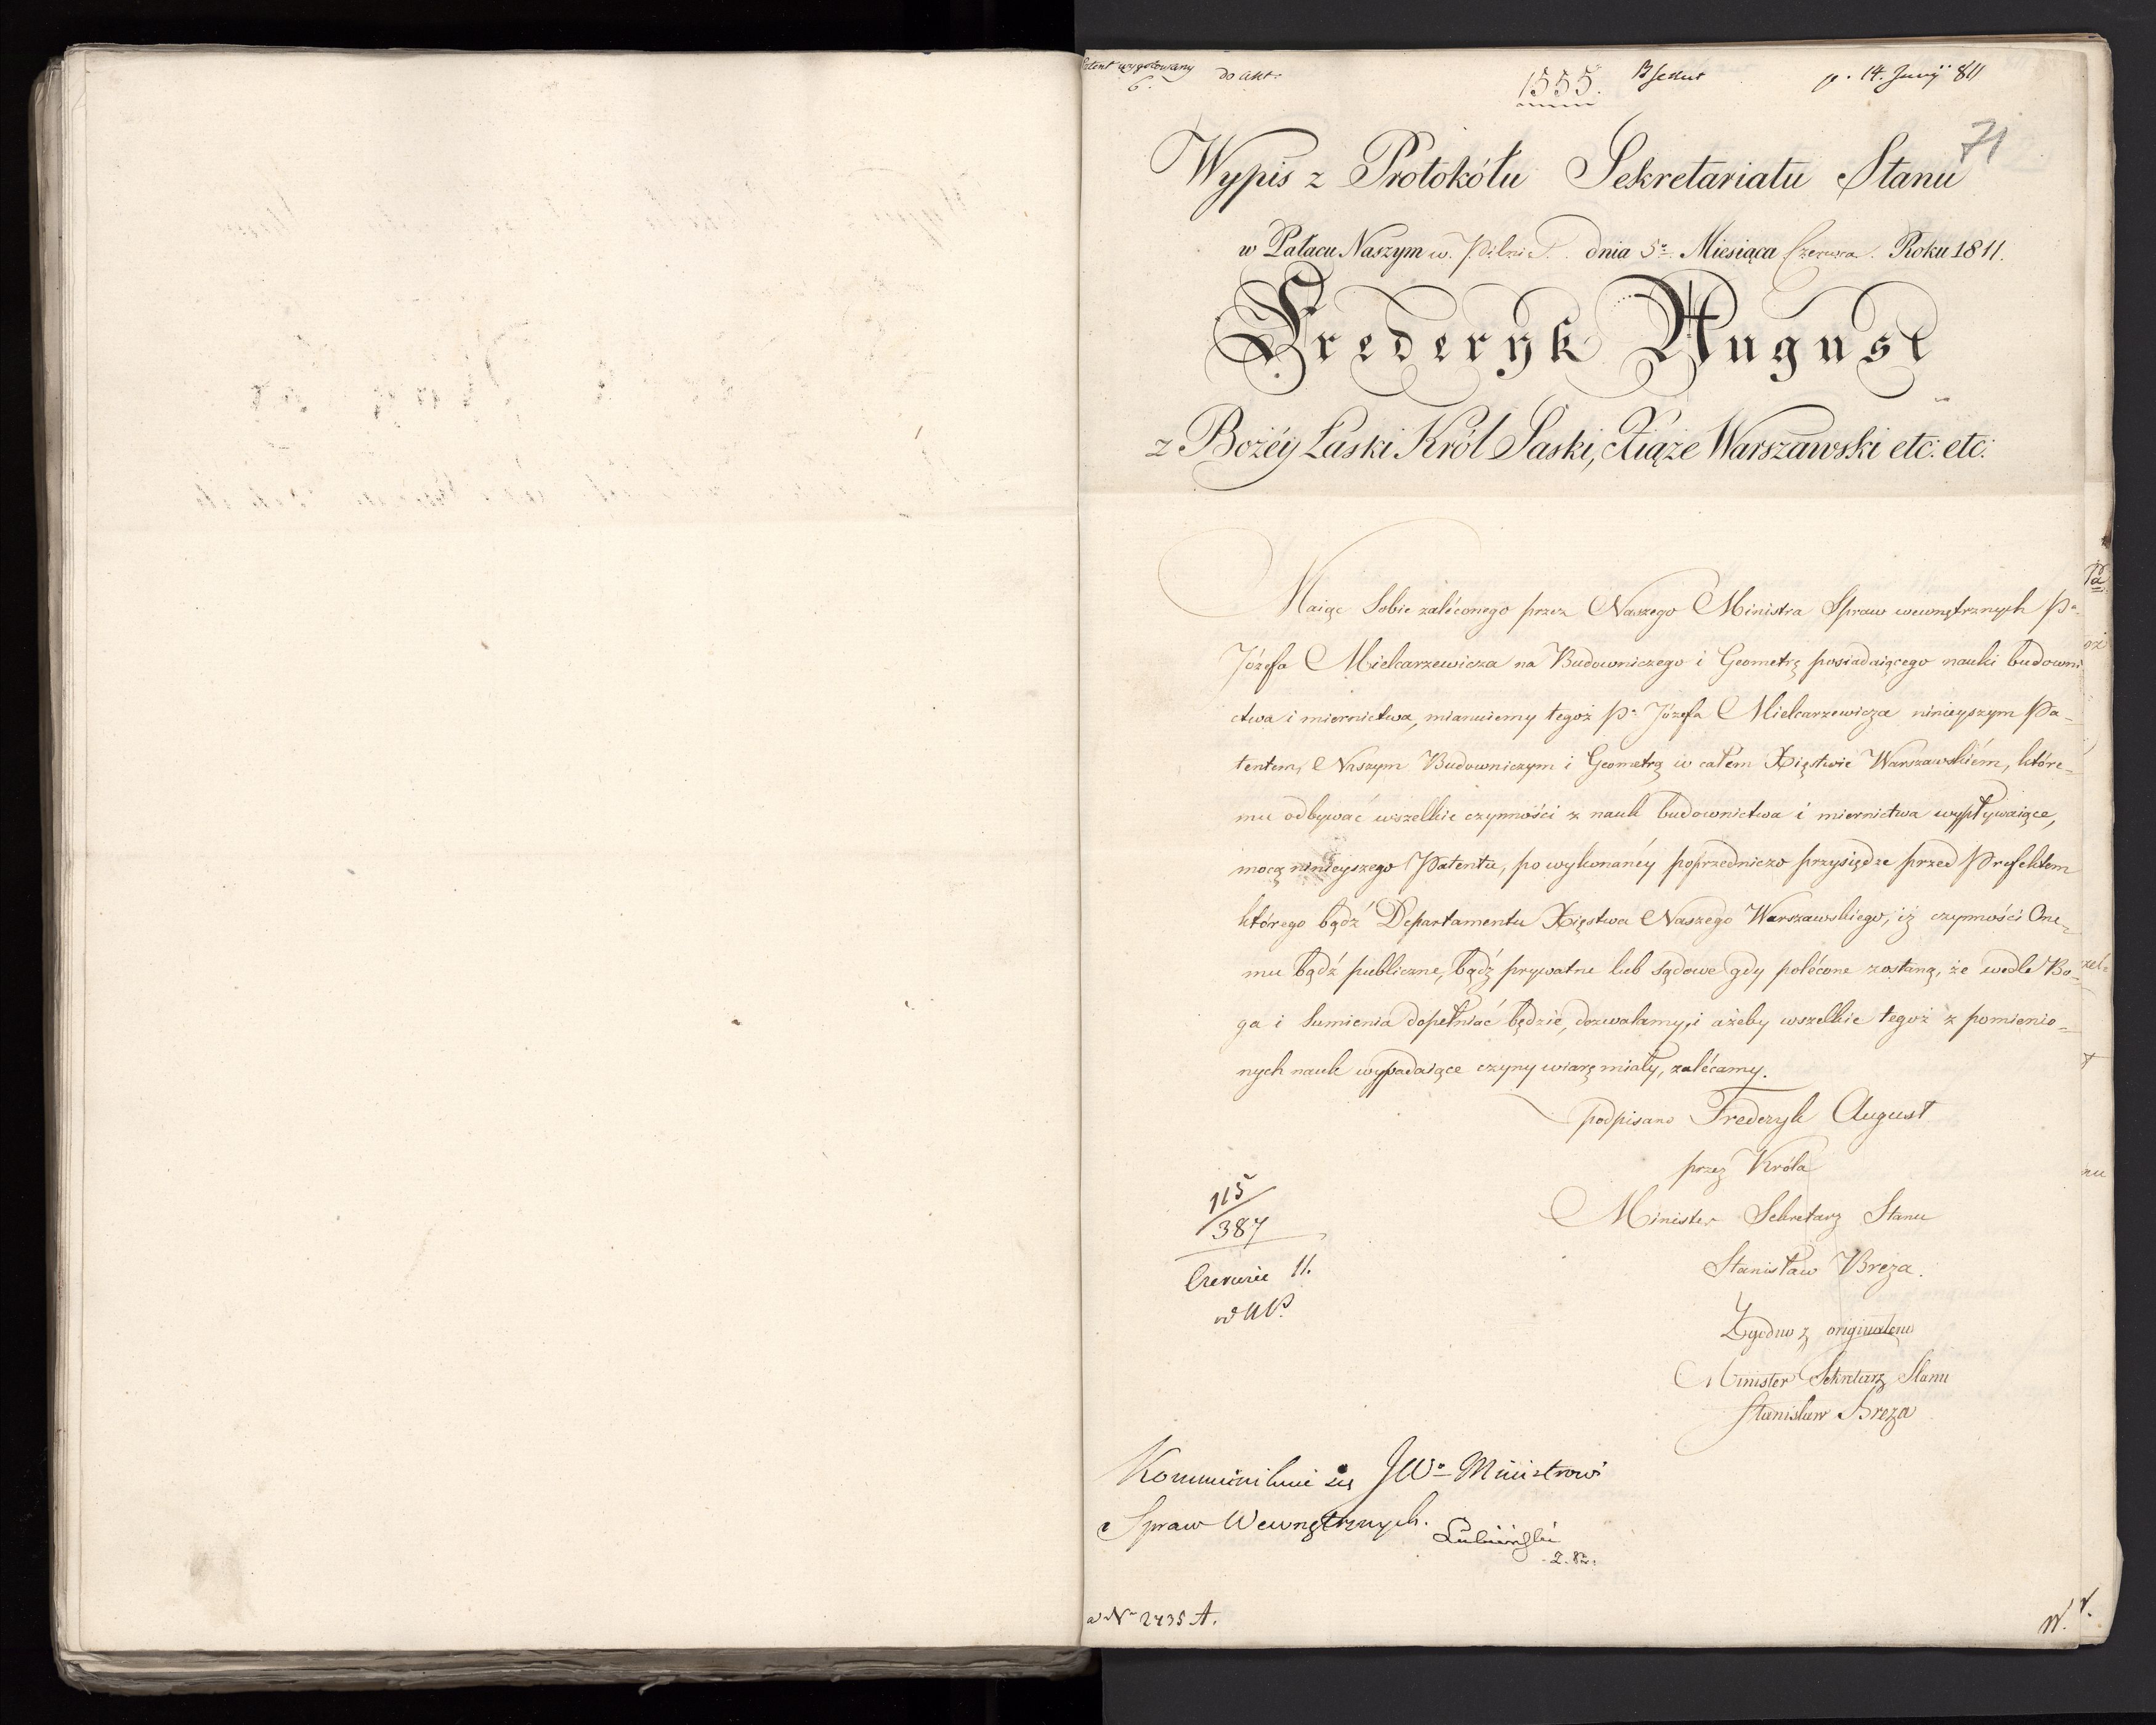 Patent wygotowany
6.
do akt.
1555.
p. 14. Junÿ 811
71
Wypis z Protokółu Sekretariatu Stanu
w Pałacu Naszym w. Pilnic. dnia 5º Miesiąca Czerwca. Roku 1811.
Frederyk August
z Bożéy Łaski Król Saski, Xiąże Warszawski etc: etc:
Maiąc Sobie zaléconego przez Naszego Ministra Spraw wewnętrznych Pª
Józefa Mielcarzewicza na Budowniczego i Geometrę posiadaiącego nauki budowni
ctwa i miernictwa, mianuiemy tegoż Pª Józefa Mielcarzewicza ninieyszym Pa-
tentem, Naszym Budowniczym i Geometrą w całém Xięstwie Warszawskiém, które-
mu odbywać wszelkie czynności z nauk budownictwa i miernictwa wypływaiące,
mocą ninieyszego Patentu, po wykonanéy poprzedniczo przysiędze przed Prefektem
którego bądź Departamentu Xięstwa Naszego Warszawskiego, iż czynności One-
mu bądź publiczne, bądź prywatne lub sądowe gdy polécone zostaną, że wedle Bo-
ga i Sumienia dopełniać będzie, dozwalamy, i ażeby wszelkie tegoż z pomienio-
nych nauk wypadaiące czyny wiarę miały, zalécamy.
podpisano Frederyk August
przez Króla
Minister Sekretarz Stanu
Stanisław Breza.
Zgodno z originałem
Minister Sekretarz Stanu
Stanisław Breza
115
387
Czerwiec 11.
Kommunikuie się JWº Ministrowi
Spraw Wewnętrznych.
Łubieński
Nº 2435 A.